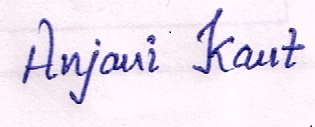 Anjani Kant